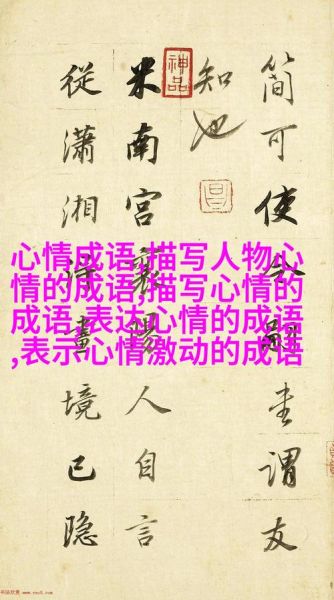 心情成语,描写人物心
情的成语,描写心情的
成语,表达心情的成语
,表示心情激动的成语
簡可使謂友
知也
神品
米南宮襄陽人自言
從瀟湘得畫境已隱